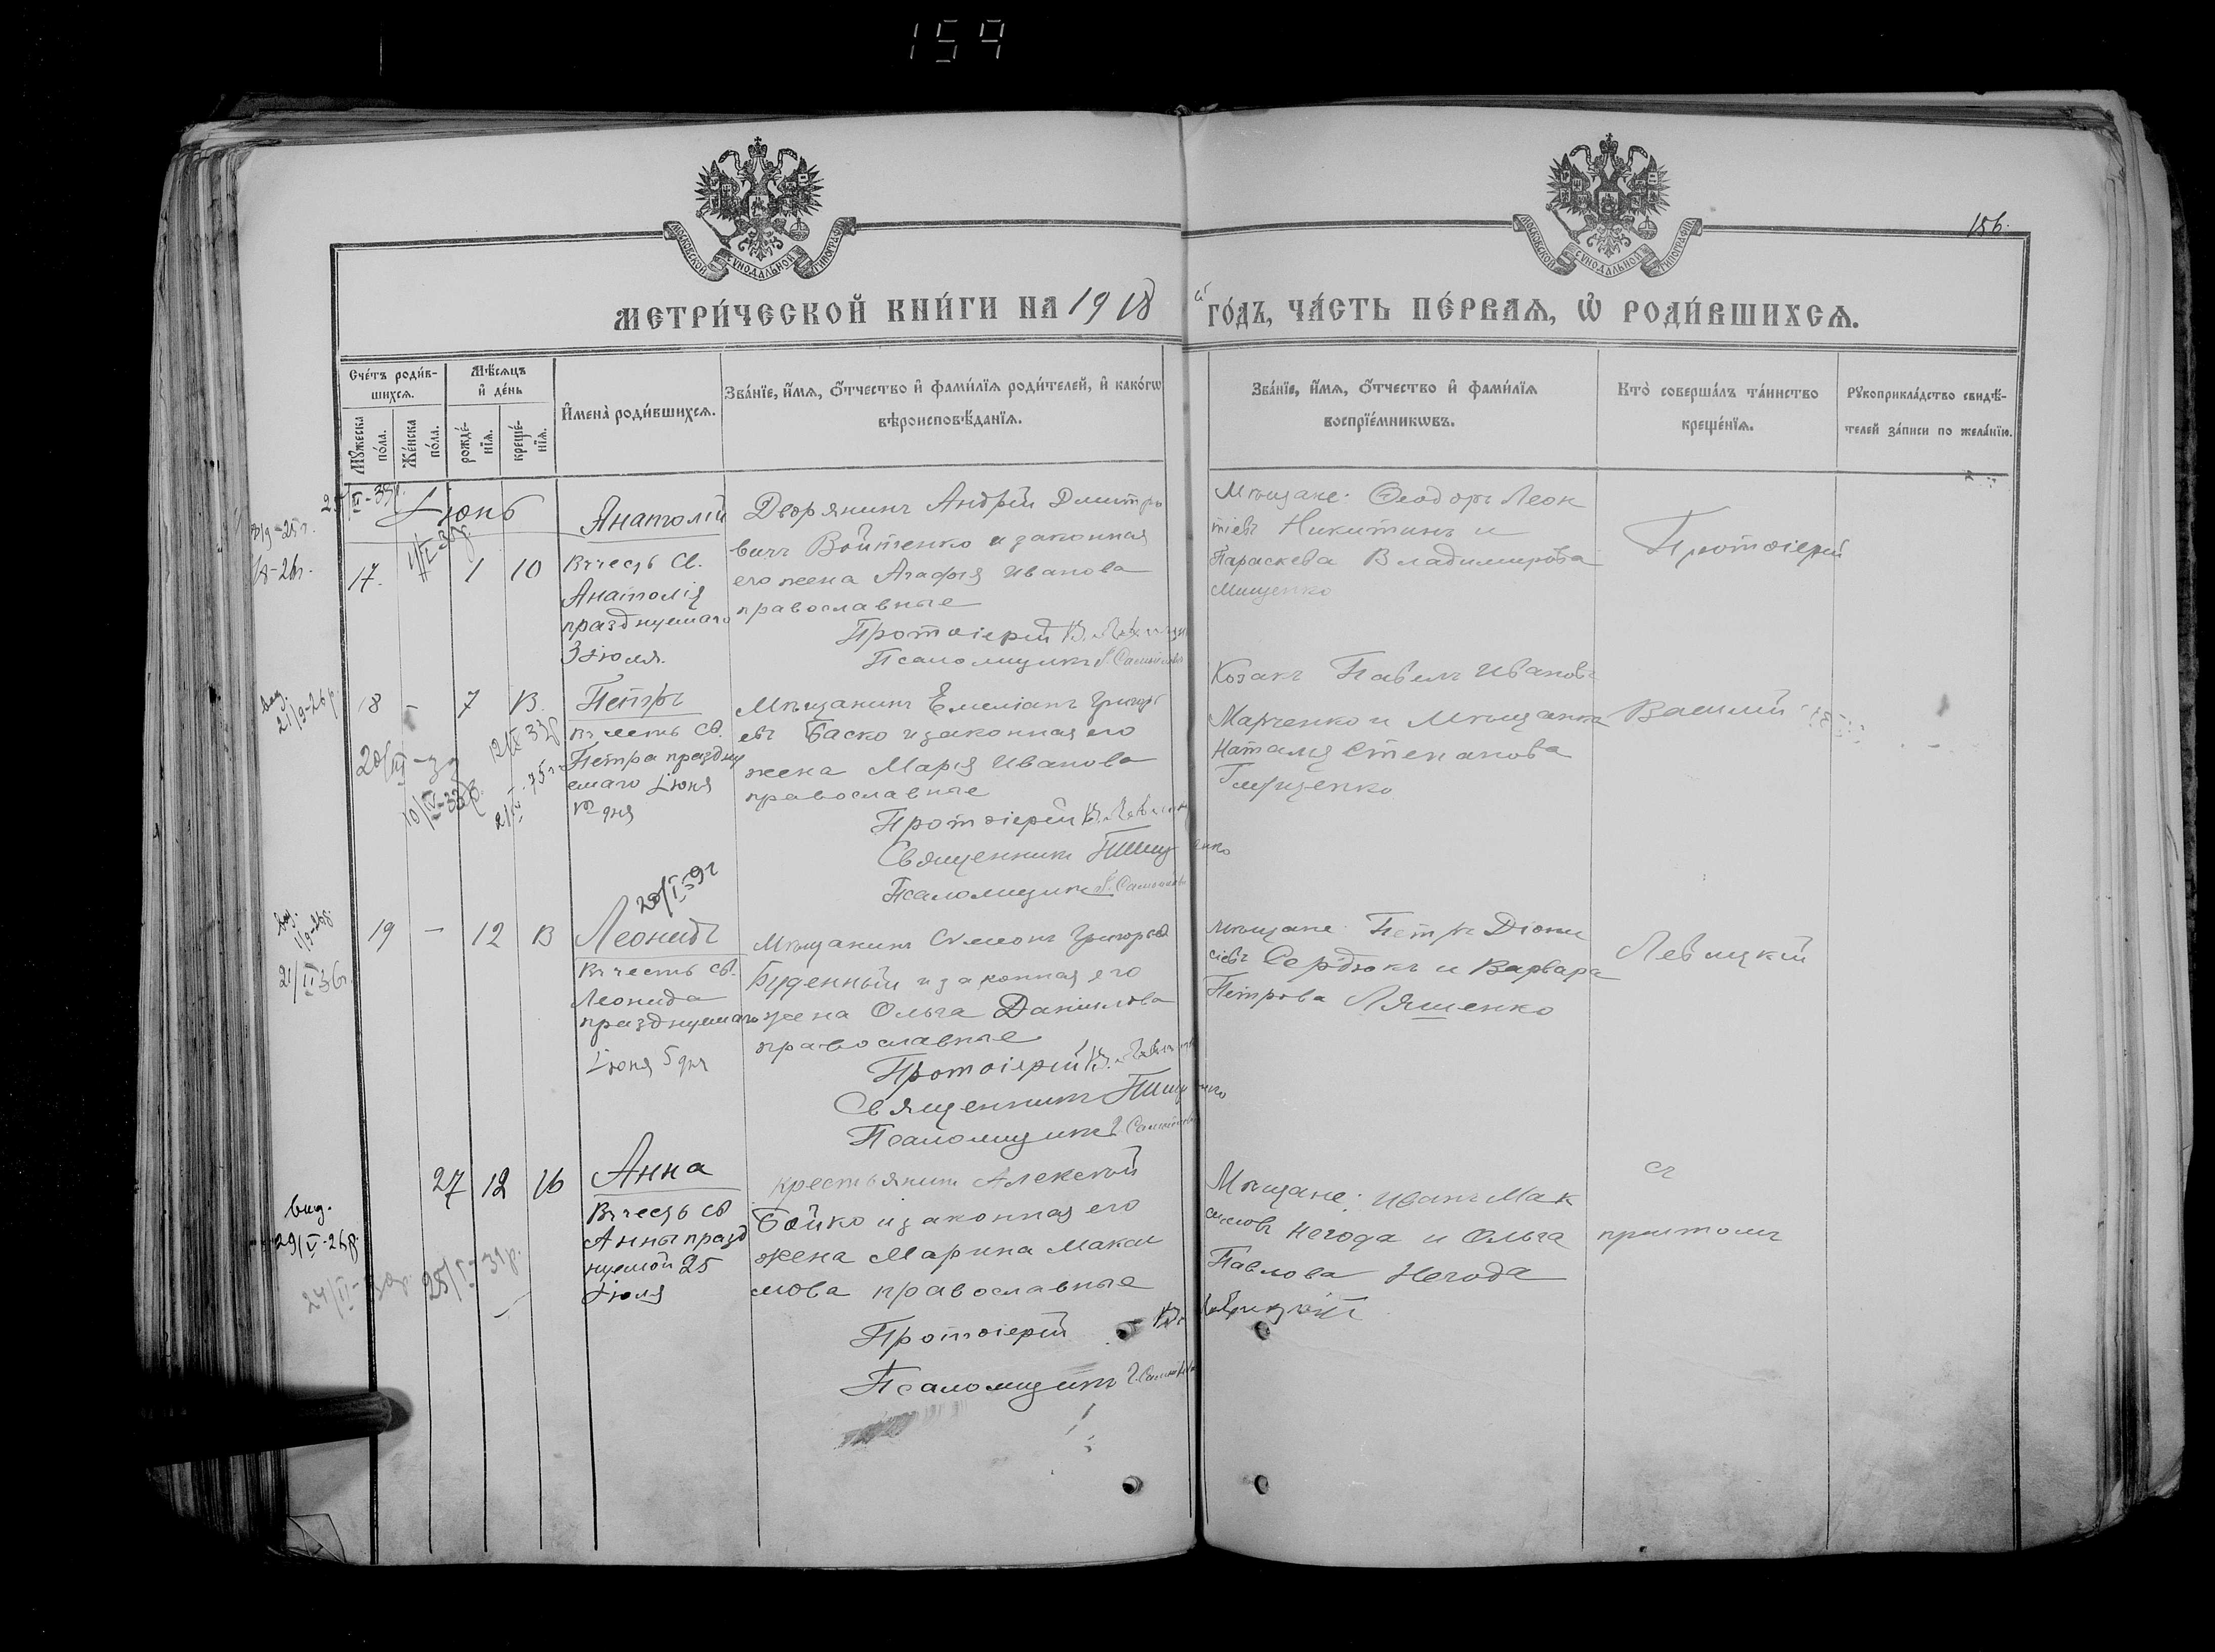 159
156.
МОСКОВСКОЙ СѴНОДАЛЬНОЙ ТИПОГРАФІИ
МОСКОВСКОЙ СѴНОДАЛЬНОЙ ТИПОГРАФІИ
МЕТРИ́ЧЕСКОЙ КНИ́ГИ НА 1918 й ГО́ДЪ, ЧА́СТЬ ПЕ́РВАѦ, Ѽ РОДИ́ВШИХСѦ.
Сче́тъ роди́в-
шихсѧ.
Мꙋжеска по́ла.
Же́нска по́ла.
Мѣ́сѧцъ и҆ де́нь
рожде́-нїѧ.
креще́-нїѧ.
И҆мена̀ роди́вшихсѧ.
Зва́нїе, и҆́мѧ, ѻ҆́тчество и҆ фами́лїѧ роди́телей, и҆ како́гѡ
вѣроисповѣ́данїѧ.
Зва́нїе, и҆́мѧ, ѻ҆́тчество и҆ фами́лїѧ
воспрїе́мникѡвъ.
Кто̀ соверша́лъ та́инство
креще́нїѧ.
Рꙋкоприкла́дство свидѣ́-
телей за́писи по жела́нїю.
Іюнь
17. 1 10
Анатолій
Въ честь Св.
Анатолія
празднуемаго
3 Іюля.
Дворянинъ Андрей Дмитріе
вичъ Войтенко и законная
его жена Агафія Иванова
православные
Протоіерей В. Левицкій
Псаломщикъ
Мѣщане: Ѳеодоръ Леон
тіевъ Никитинъ и
Параскева Владимирова
Мищенко
Протоіерей
вид.
21/9-26р.
18 - 7 13.
Петръ
Въ честь Св.
Петра праздну
емаго Іюня
дня
Мѣщанинъ Емеліанъ Григорь
евъ Баско и законная его
жена Марія Иванова
православные
Протоіерей В. Левицкій
Священникъ
Псаломщикъ
Козакъ Павелъ Ивановъ
Марченко и Мѣщанка
Наталія Степанова
Василий
19 - 12 13
Леонидъ
Въ честь св.
Леонида
празднуемаго
Іюня 5 дня
Мѣщанинъ Сѵмеонъ Григорьев
Буденный и законная его
жена Ольга Даніилова
православные
Протоіерей В. Левицкій
Священникъ
Псаломщикъ
Мѣщане: Петръ Діони
сіевъ Сердюкъ и Варвара
Петрова Ляшенко
Левицкій
вид.
29/V-26р.
27 12 16
Анна
Въ честь св
Анны празд
нуемой 25
Іюля
крестьянинъ Алексѣй
Бойко и законная его
жена Марина Макси
мова православные
Протоіерей В. Левицкій
Псаломщикъ
Мѣщане: Иванъ Мак
симовъ Негода и Ольга
Павлова Негода
съ
причтомъ